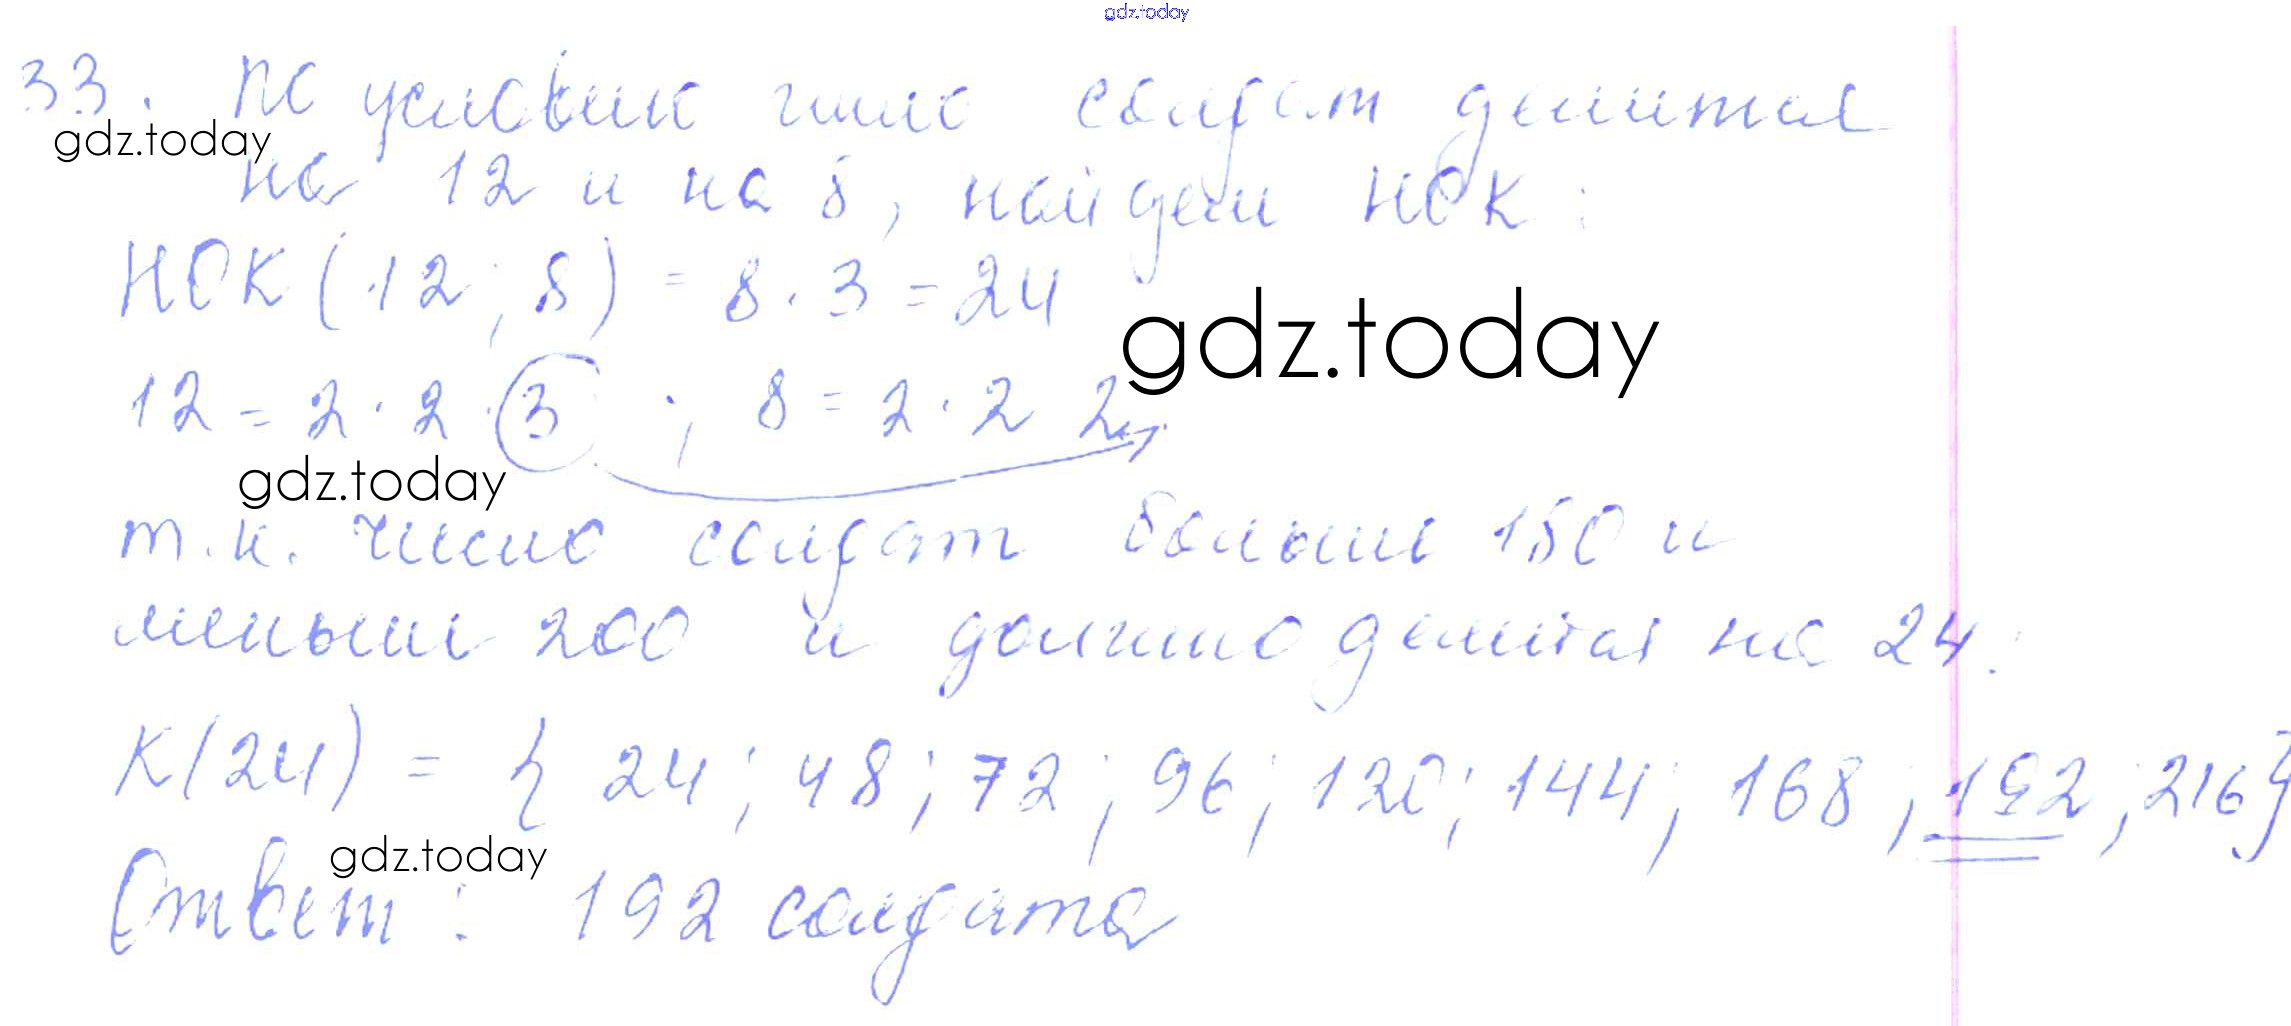 gdz.today
33. По условию число солдат делится
gdz.today
на 12 и на 8, найдем НОК:
НОК(12; 8) = 8 · 3 = 24
gdz.today
12 = 2 · 2 · 3 ; 8 = 2 · 2 2
gdz.today
т.к. число солдат больше 180 и
меньше 200 и должно делится на 24:
К(24) = { 24; 48; 72; 96; 120; 144; 168; 192; 216}
gdz.today
Ответ: 192 солдата